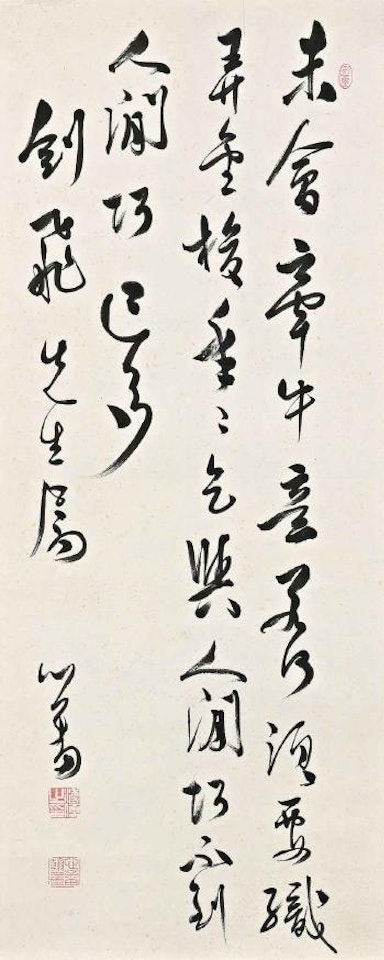 未會牽牛意若何須要織
弄金梭年〻乞與人間巧不到
人間巧已多
劍飛先生屬 心畬